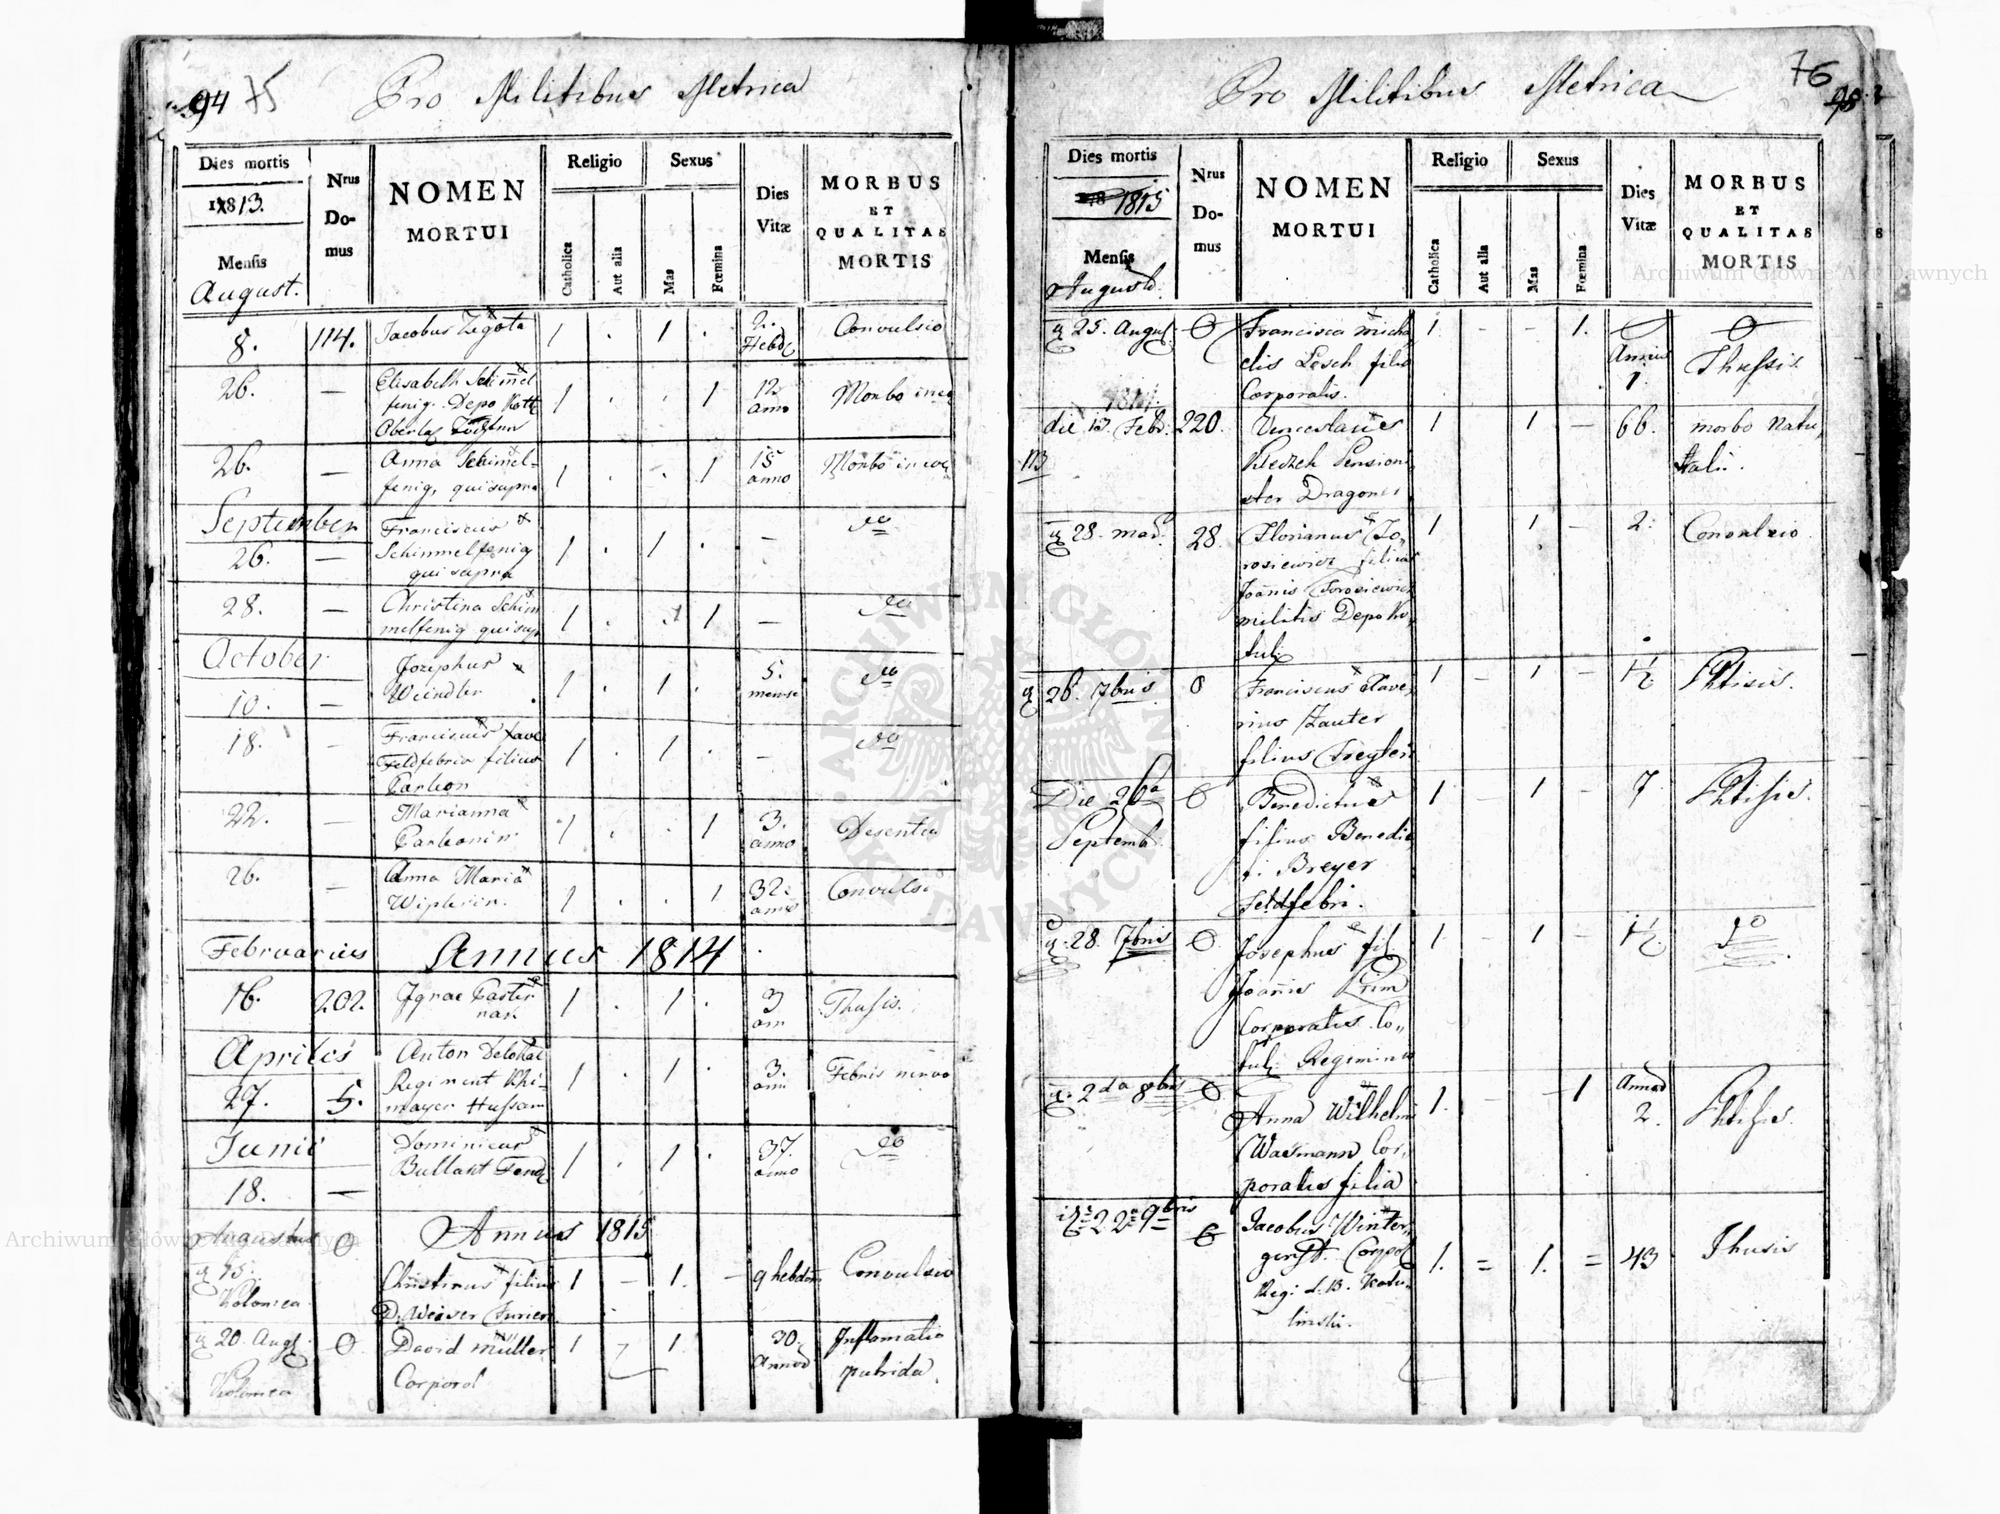 94 75
Pro Militibus Metrica
Dies mortis
1813.
Mensis
August.
Nrus
Do-
mus
NOMEN
MORTUI
Religio
Catholica
Aut alia
Sexus
Mas
Fœmina
Dies
Vitæ
MORBUS
ET
QUALITAS
MORTIS
8. 114. Jacobus Zegota 1 . 1 . 2. Hebd Convulsio
26. — Elisabeth Schimel
fenig. Depo
1 . . 1 12 anno Morbo
26. — Anna Schimel-
fenig, qui supra
1 . . 1 15 anno Morbo
September
26. — Franciscus
Schimmelfenig
qui supra
1 . 1 . — do
28. — Christina Schim
melfenig qui sup
1 . . 1 — do
October
10. — Josephus
Windler
1 . 1 . 5. mense do
18. — Franciscus Xave
Feldfebris filius
Carbon
1 . 1 . — do
22. — Marianna
Carbonin
1 . . 1 3. anno Desente
26. — Anna Maria
1 . . 1 32. annos Convulsi
Februarius Annus 1814
16. 202. Ignac Paster
nak
1 . 1 . 3 ann Thusis.
Aprilis
27. 5. Anton
Regiment Khi-
mayer Hussar
1 . 1 . 3. ann Febris nervo
Junii
18. — Dominicus
Bullant
1 . 1 . 37. anno do
Augustus 0 Annus 1815
q 15.
Kolomea
Christinus filius
D. Weiser Furier
1 — 1. — 9 hebdom Convulsio
q 20. Augt 0 David Müller
Kolomea
Corporal
1 1 30. Annor Inflamatio
putrida.
76
95
Pro Militibus Metrica
Dies mortis
1815
Mensis
August
Nrus
Do-
mus
NOMEN
MORTUI
Religio
Catholica
Aut alia
Sexus
Mas
Fœmina
Dies
Vitæ
MORBUS
ET
QUALITAS
MORTIS
q 25. August 0 Francisca Micha
elis Lesch filia
Corporalis.
1. — — 1. Annus 1. Thussis.
1814.
die 13. Febr. 220. Venceslaus
NB
Pension
ster Dragones
1 1 — 66. morbo Natu,
rali.
q 28. 28. Florianus To,,
rosiewicz filius
Joannis Torosiewicz
militis Depoho,,
tul:
1 1 — 2. Convulsio
q 26. 7bris 0 Franciscus Xave,
rius Zauter
filius
1 — 1 — 1½ Phtisis.
Die 26ta
Septemb. 0 Benedictus
filius Benedic
ti Breyer
Feldfebri.
1 — 1 — 7 Phtisis.
q. 28. 7bris 0 Josephus fil.
Joannis Prim
Corporalis Co,,
tul: Regiminis
1. — 1 — 1½. do
q. 2da 8bris 0
Anna Wilhelmi
Wasmann Cor,,
poralis filia
1. — — 1 Annor 2. Phtisis.
22 9bris Jacobus Winter,,
gerst. Corpol
Regi: L. B. Kotu,,
linski.
1. = 1. = 43 Thusis
Archiwum Główne Akt Dawnych
Archiwum Główne Akt Dawnych
ARCHIWUM GŁÓWNE AKT DAWNYCH